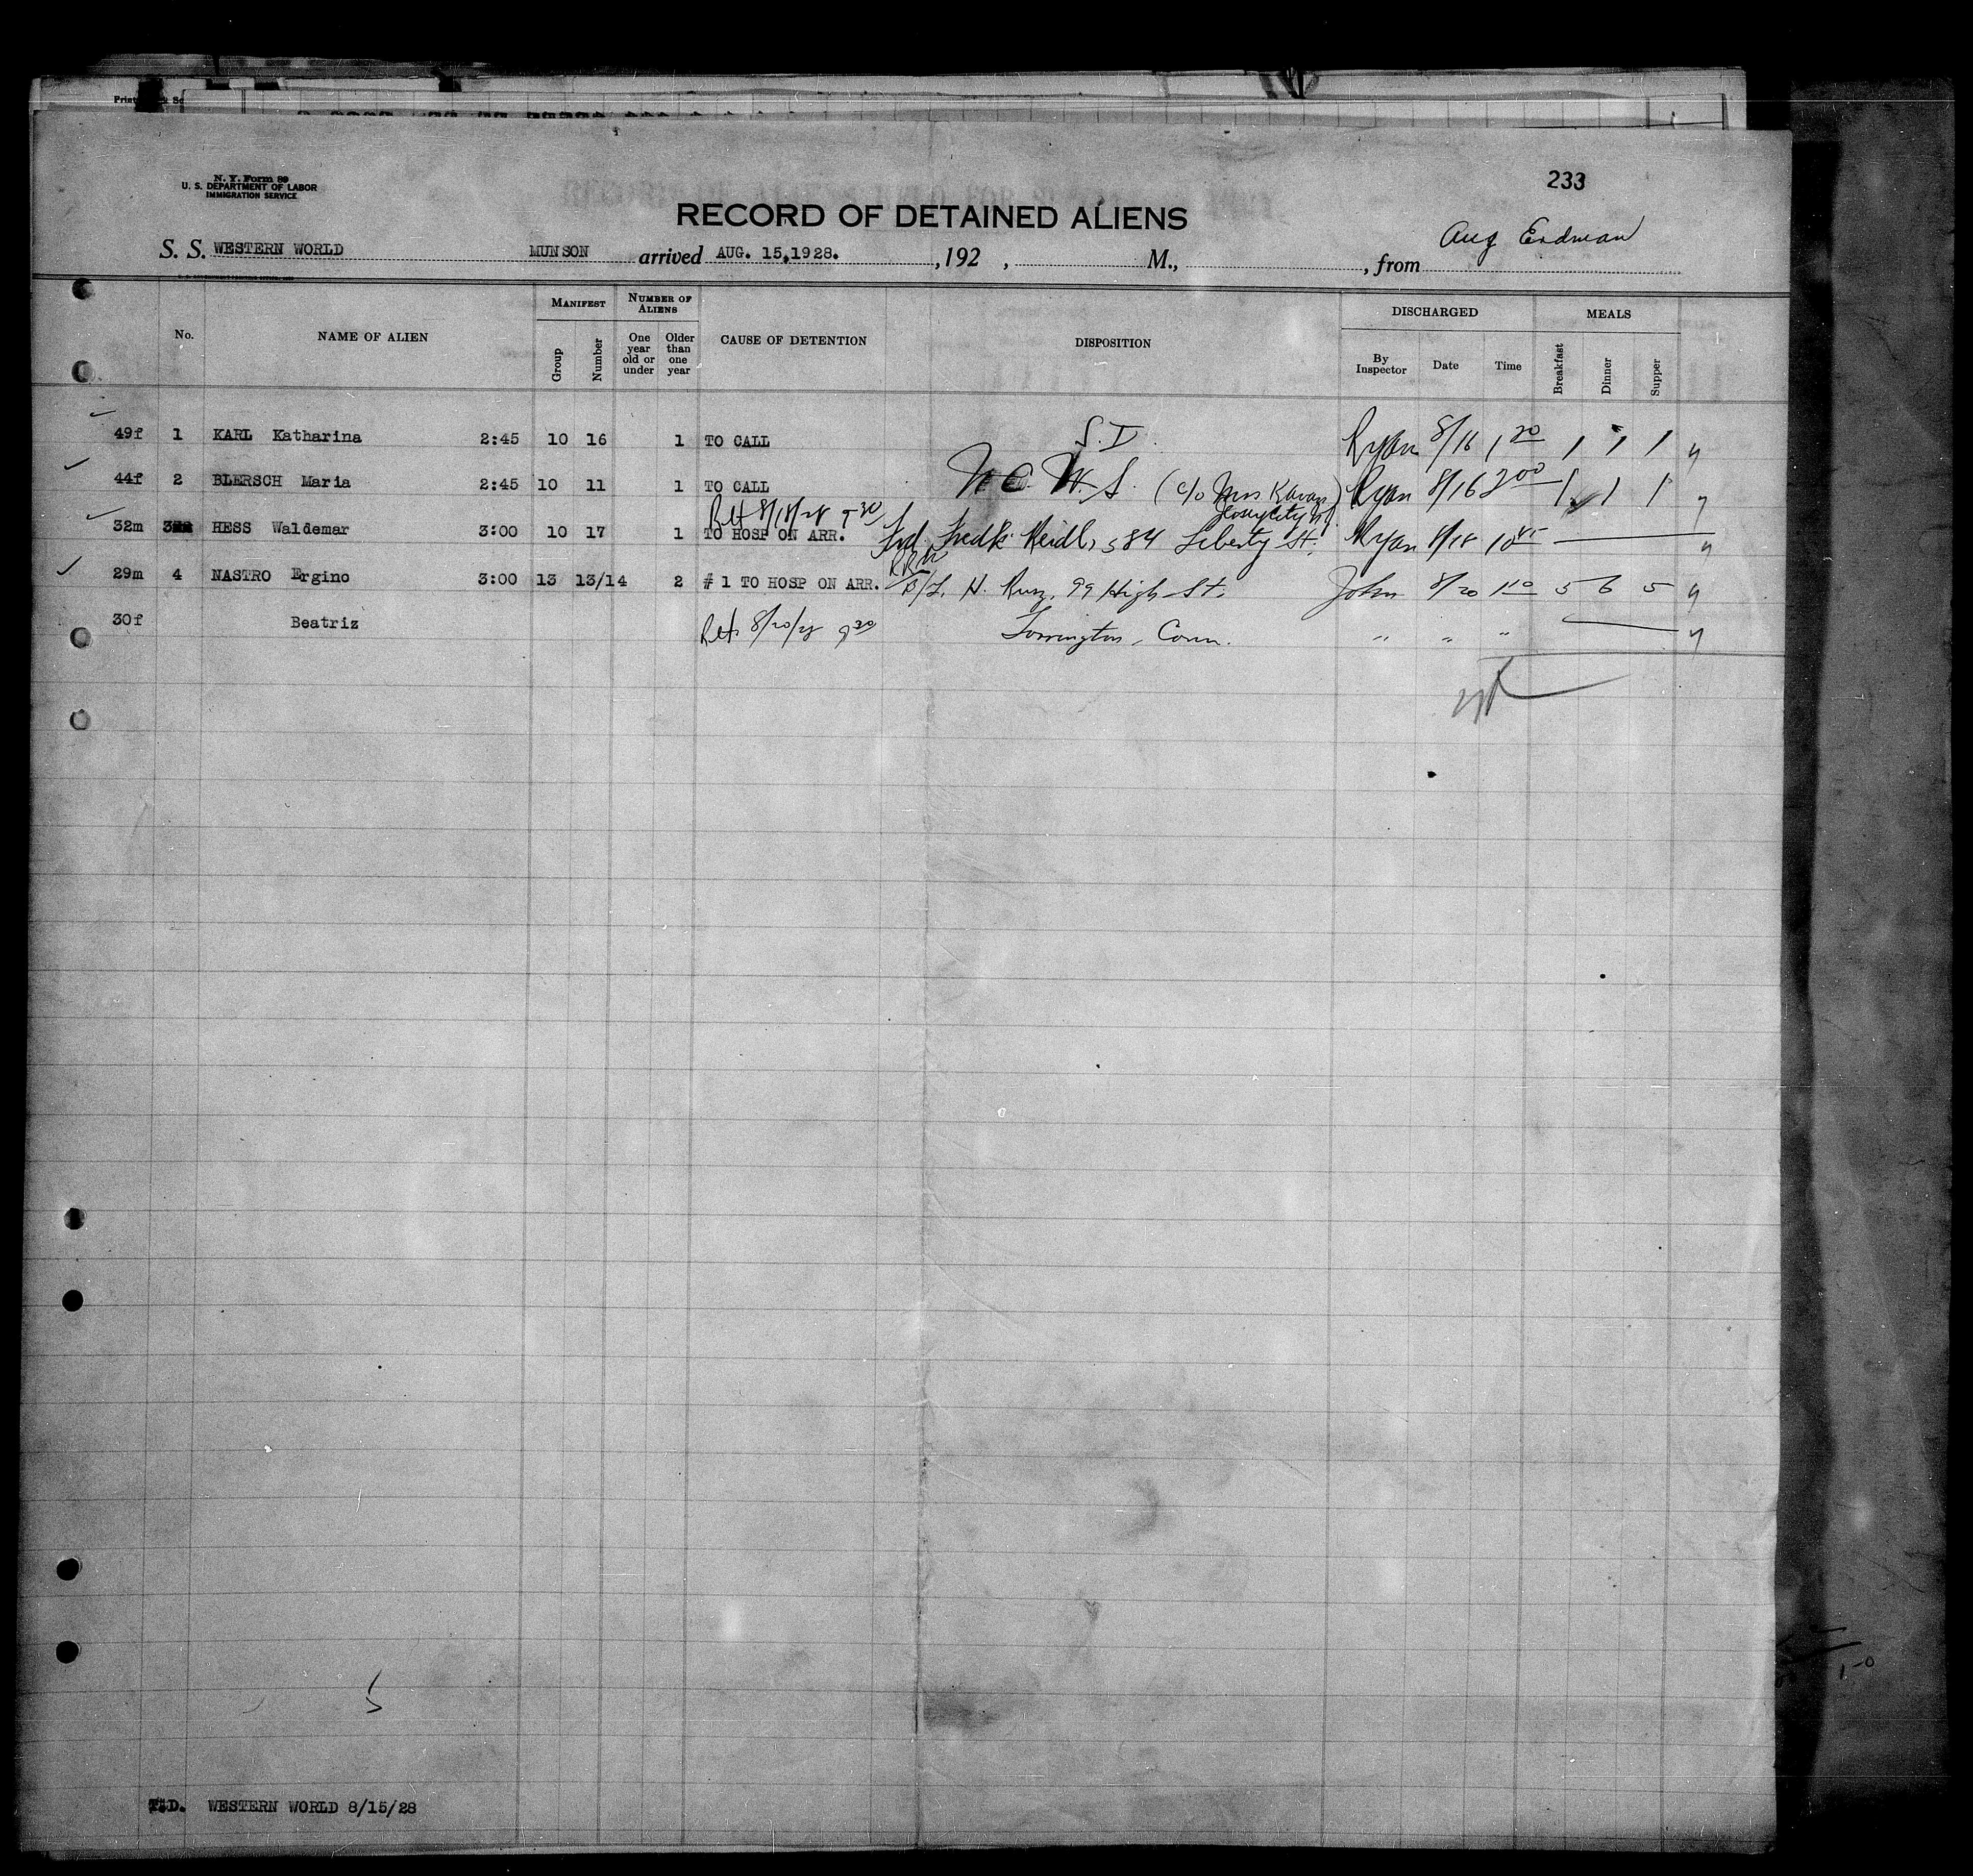 233
N. Y. Form 89
U. S. DEPARTMENT OF LABOR
IMMIGRATION SERVICE
RECORD OF DETAINED ALIENS
Aug Erdman
S. S. WESTERN WORLD MUNSON arrived AUG. 15,1928. ,192 , M., , from
MANIFEST NUMBER OF ALIENS DISCHARGED MEALS
No. NAME OF ALIEN Group Number One year old or under Older than one year CAUSE OF DETENTION DISPOSITION By Inspector Date Time Breakfast Dinner Supper
S. I.
49f 1 KARL Katharina 2:45 10 16 1 TO CALL Ryan 8/16 1 20 1 1 1
44f 2 BLERSCH Maria 2:45 10 11 1 TO CALL N C W S. (c/o Mrs Ryan 8/16 2 00 1 1 1
8/18/28 9 30 Jersey City NJ.
32m 3 HESS Waldemar 3:00 10 17 1 TO HOSP ON ARR. Fredk Heidl, 584 Liberty St. Ryan 8/18 10 45
29m 4 NASTRO Ergino 3:00 13 13/14 2 # 1 TO HOSP ON ARR. H. 99 High St. John 8/20 1 10 5 6 5
30f Beatriz 8/20/28 9 30 Torrington, Conn. " " "
T.D. WESTERN WORLD 8/15/28